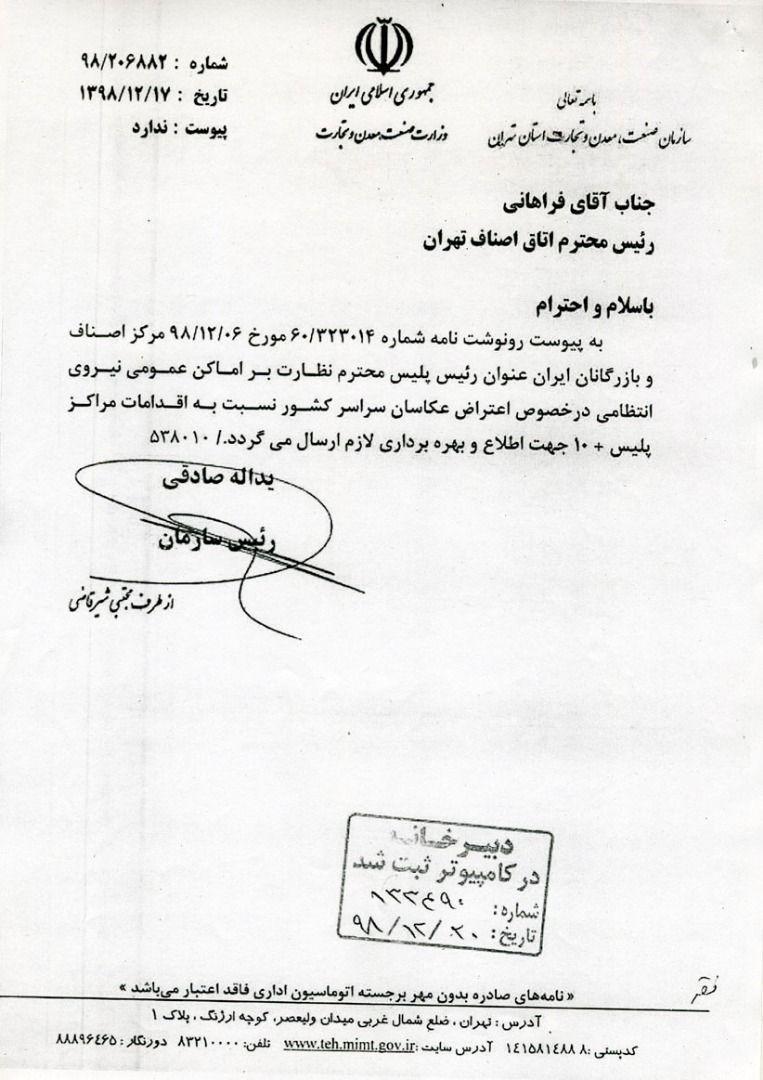 باسمه تعالی
سازمان صنعت، معدن و تجارت استان تهران
جمهوری اسلامی ایران
وزارت صنعت، معدن و تجارت
شماره : ۹۸/۲۰۶۸۸۲
تاریخ : ۱۳۹۸/۱۲/۱۷
پیوست : ندارد
جناب آقای فراهانی
رئیس محترم اتاق اصناف تهران
باسلام و احترام
به پیوست رونوشت نامه شماره ۶۰/۳۲۳۰۱۴ مورخ ۹۸/۱۲/۰۶ مرکز اصناف
و بازرگانان ایران عنوان رئیس پلیس محترم نظارت بر اماکن عمومی نیروی
انتظامی درخصوص اعتراض عکاسان سراسر کشور نسبت به اقدامات مراکز
پلیس + ۱۰ جهت اطلاع و بهره برداری لازم ارسال می گردد./ ۵۳۸۰۱۰
یداله صادقی
رئیس سازمان
از طرف مجتبی شیرقاضی
دبیرخانه
در کامپیوتر ثبت شد
شماره:
تاریخ: ۹۸/۱۲/۲۰
« نامه‌های صادره بدون مهر برجسته اتوماسیون اداری فاقد اعتبار می‌باشد »
آدرس : تهران ، ضلع شمال غربی میدان ولیعصر، کوچه ارژنگ ، پلاک ۱
کدپستی :۱۴۱۵۸۱۴۸۸۸ آدرس سایت :www.teh.mimt.gov.ir تلفن: ۸۳۲۱۰۰۰۰ دورنگار : ۸۸۸۹۶۴۶۵